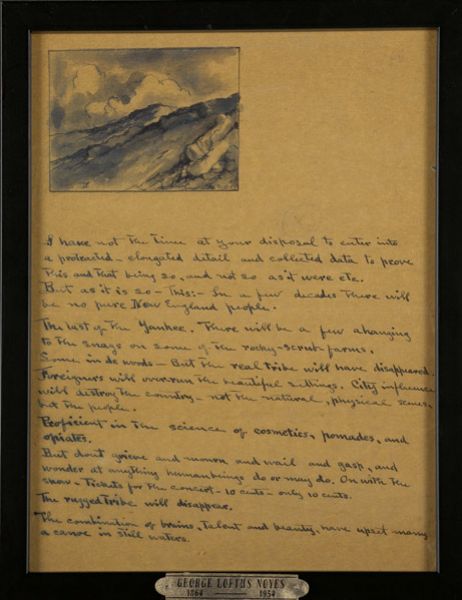 I have not the time at your disposal to enter into
a protracted - elongated detail and collected data to prove
this and that being so, and not so as it were etc.
But as it is so - this:- In a few decades there will
be no pure New England people.
The last of the Yankee. There will be a few a hanging
to the snags on some of the rocky-scrub farms.
Some in de woods - But the real tribe will have disappeared.
Foreigners will overrun the beautiful settings. City influence
will destroy the country - not the natural, physical scenes,
but the people.
Proficient in the science of cosmetics, pomades, and
opiates.
But dont grieve and mourn and wail and gasp, and
wonder at anything human beings do or may do. On with the
show - Tickets for the concert - 10 cents - only 10 cents.
The rugged tribe will disappear.
The combination of brains, talent and beauty, have upset many
a canoe in still waters.
GEORGE LOFTUS NOYES
1864 1954